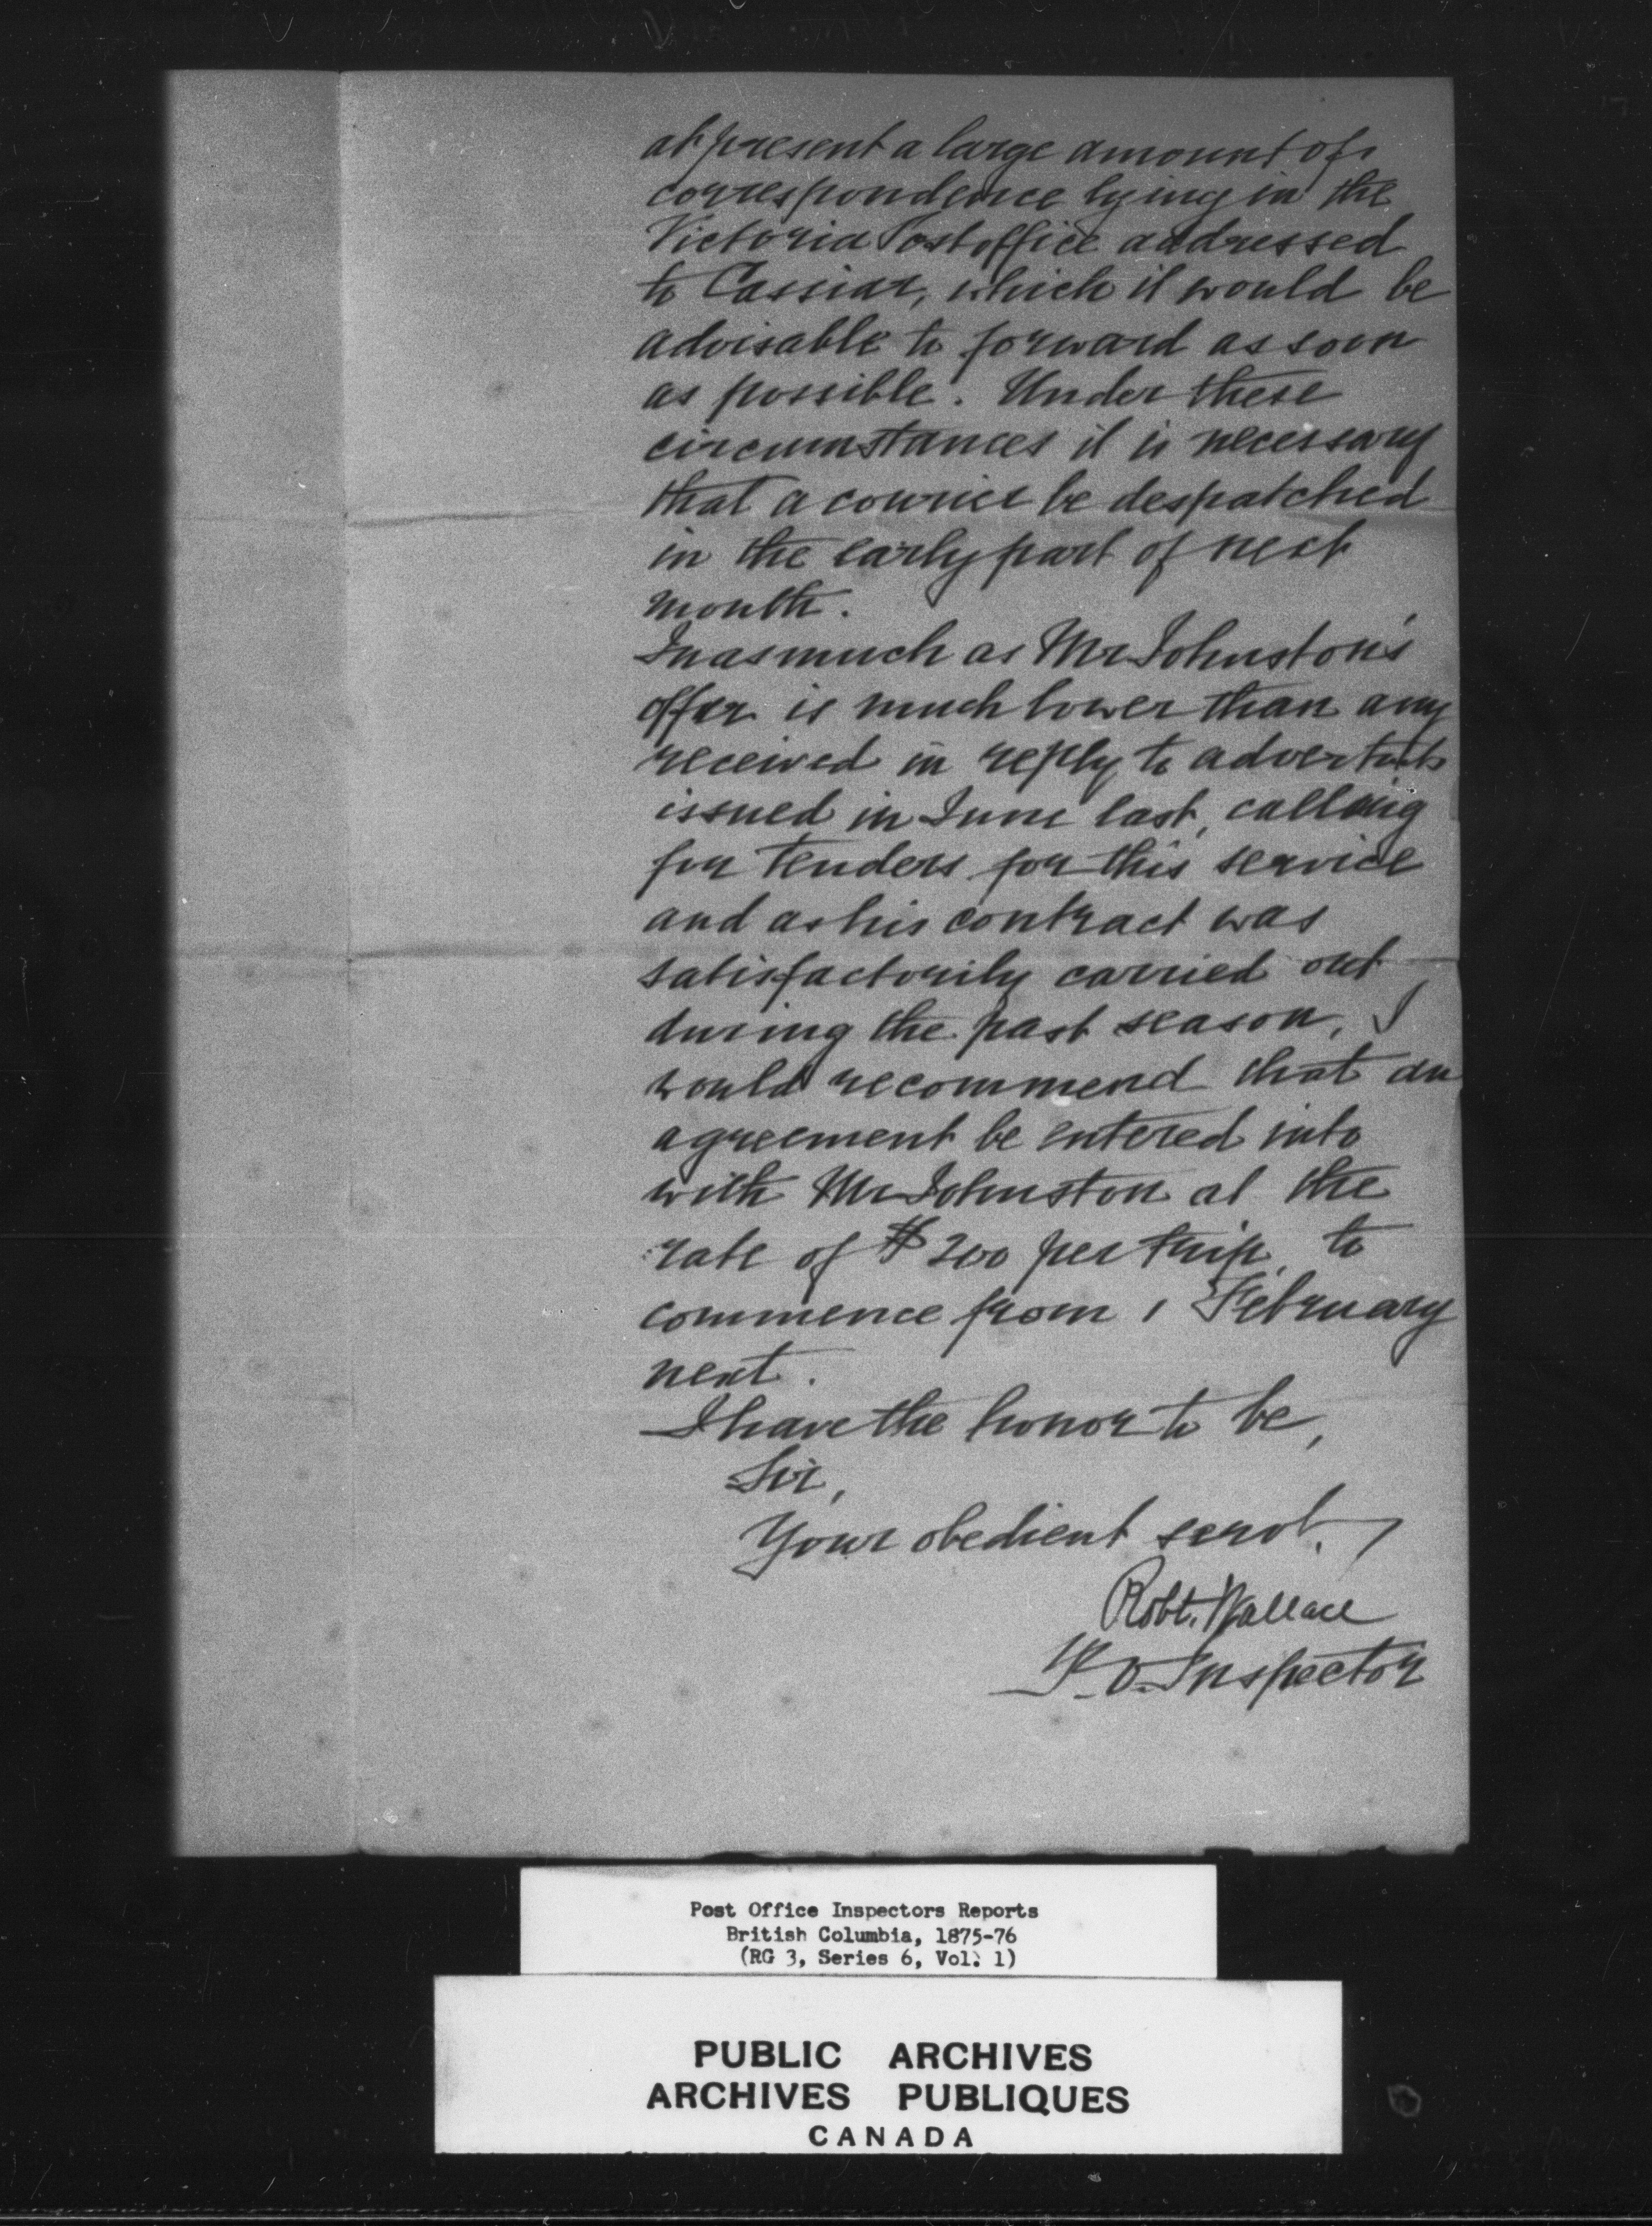 at present a large amount of
correspondence lying in the
Victoria Postoffice addressed
to Cassiar, which it would be
advisable to forward as soon
as possible. Under these
circumstances it is necessary
that a courier be despatched
in the early part of next
month.
Inasmuch as Mr Johnston's
offer is much lower than any
received in reply to advertmts
issued in June last, calling
for tenders for this service
and as his contract was
satisfactorily carried out
during the past season, I
would recommend that an
agreement be entered into
with Mr Johnston at the
rate of $200 per trip, to
commence from 1 February
next.
I have the honor to be,
Sir,
Your obedient servt.
Robt. Wallace
P.O. Inspector
Post Office Inspectors Reports
British Columbia, 1875-76
(RG 3, Series 6, Vol. 1)
PUBLIC ARCHIVES
ARCHIVES PUBLIQUES
CANADA